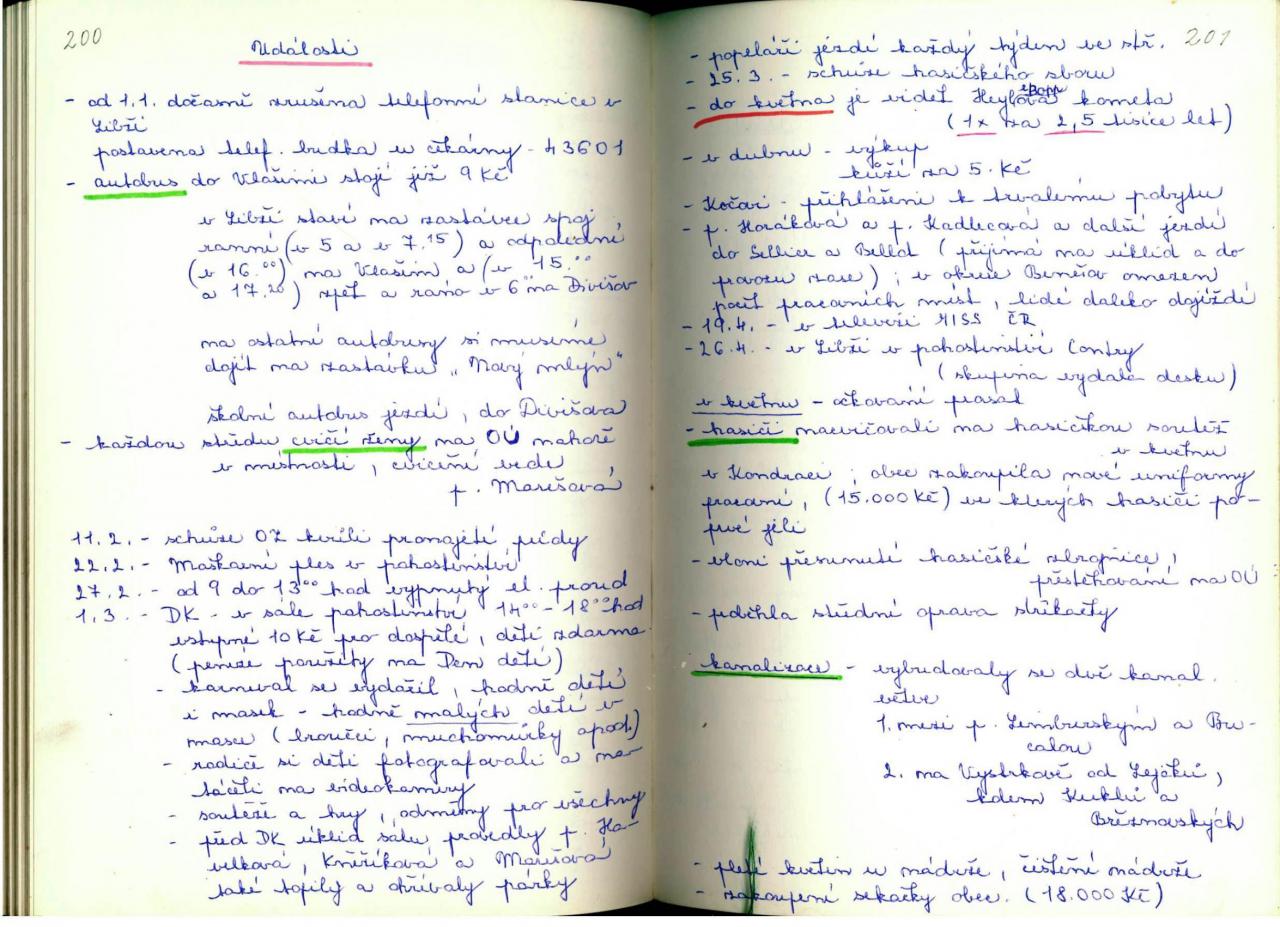 200
Události
- od 1.1. dočasně zrušena telefonní stanice v
Libži
postavena telef. budka u čekárny - 43601
- autobus do Vlašimi stojí již 9 Kč
v Libži staví na zastávce spoj
ranní (v 5 a v 7.15) a odpolední
(v 16.00) na Vlašim a (v 15.00
a 17.20) zpět a ráno v 6 na Divišov
na ostatní autobusy si musíme
dojít na zastávku „Nový mlýn“
školní autobus jezdí, do Divišova
- každou středu cvičí ženy na OÚ nahoře
v místnosti, cvičení vede
p. Marešová
11.2. - schůze OZ kvůli pronajetí půdy
22.2. - Maškarní ples v pohostinství
27.2. - od 9 do 13.00 hod vypnutý el. proud
1.3. - DK - v sále pohostinství 14.00 - 18.00 hod
vstupné 10 Kč pro dospělé, děti zdarma
(peníze použity na Den dětí)
- karneval se vydařil, hodně dětí
i masek - hodně malých dětí v
masce (broučci, muchomůrky apod.)
- rodiče si děti fotografovali a na-
táčeli na videokamery
- soutěže a hry, odměny pro všechny
- před DK úklid sálu provedly p. Ha-
velková, Knížková a Marešová
také topily a ohřívaly párky
201
- popeláři jezdí každý týden ve stř.
- 25.3. - schůze hasičského sboru
- do května je vidět Heylova Bopp kometa
(1x za 2,5 tisíce let)
- v dubnu - výkup
kůží za 5. Kč
- Kočovi - přihlášeni k trvalému pobytu
- p. Horáková a p. Kadlecová a další jezdí
do Sellier a Bellot (přijímá na úklid a do
provozu zase); v okrese Benešov omezen
počet pracovních míst, lidé daleko dojíždí
- 19.4. - v televizi MISS ČR
- 26.4. - v Libži v pohostinství Contry
(skupina vydala desku)
v květnu - očkování prasat
- hasiči nacvičovali na hasičskou soutěž
v květnu
v Kondraci; obec zakoupila nové uniformy
pracovní, (15.000 Kč) ve kterých hasiči po-
prvé jeli
- vloni přesunutí hasičské zbrojnice,
přistěhování na OÚ
- proběhla střední oprava stříkačky
- kanalizace - vybudovaly se dvě kanal.
větve
1. mezi p. Limburským a Bu-
calou
2. na Vystrkově od Lejčků,
kolem Kuklů a
Březnovských
- pletí květin u nádrže, čištění nádrže
- zakoupení sekačky obec. (18.000 Kč)